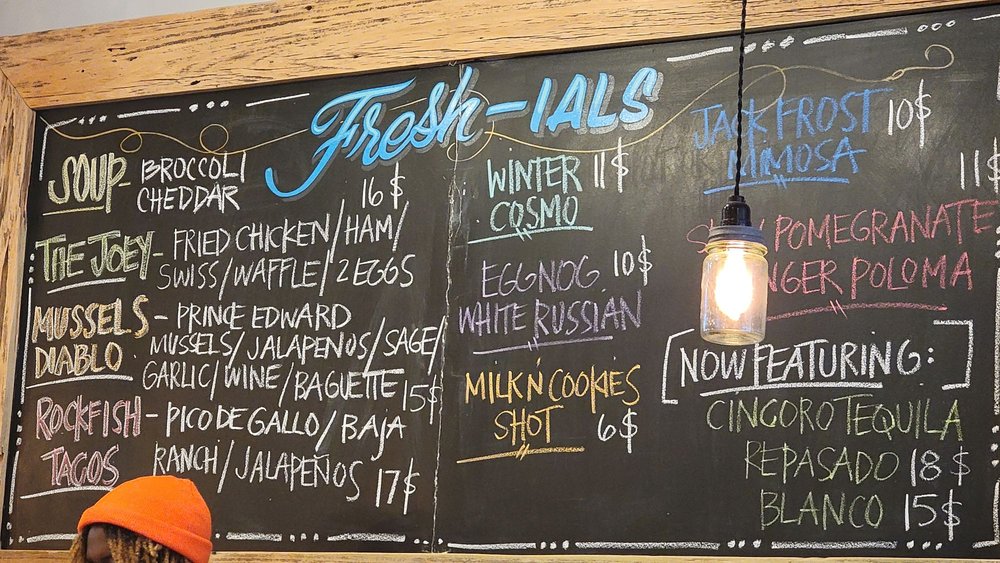 Fresh-IALS
SOUP- BROCCOLI
CHEDDAR
16$
THE JOEY- FRIED CHICKEN/HAM/
SWISS/WAFFLE/2EGGS
MUSSELS - PRINCE EDWARD
DIABLO MUSSELS/JALAPENOS/SAGE/
GARLIC/WINE/BAGUETTE 15$
ROCKFISH - PICO DE GALLO/BAJA
TACOS RANCH/JALAPEÑOS 17$
WINTER 11$
COSMO
EGGNOG 10$
WHITE RUSSIAN
MILK N' COOKIES
SHOT 6$
JACK FROST 10$
MIMOSA
11$
POMEGRANATE
POLOMA
[NOW FEATURING:]
CINCORO TEQUILA
REPASADO 18$
BLANCO 15$